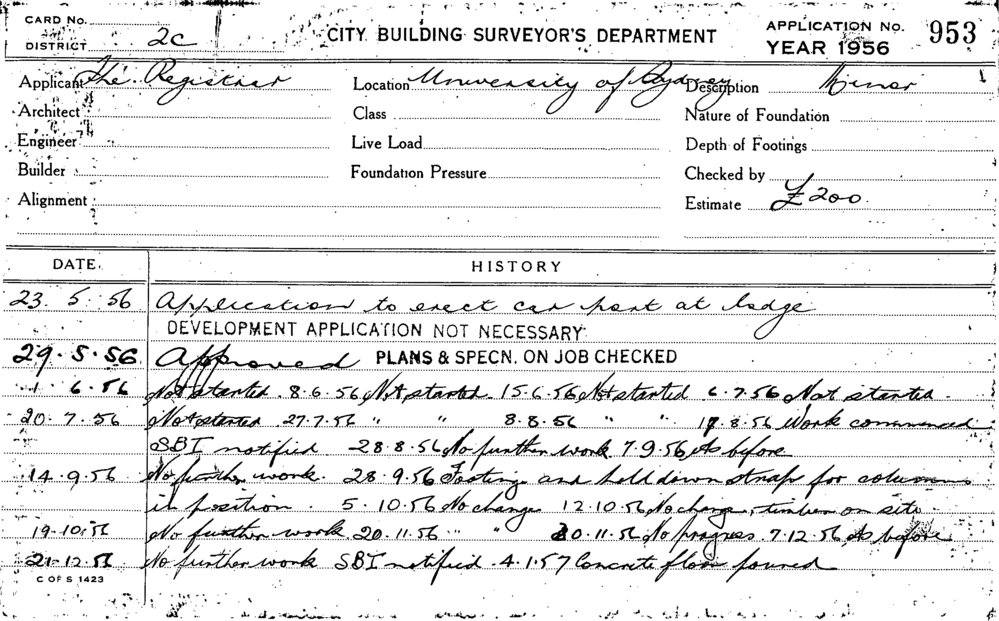 CARD No.
DISTRICT 2C
CITY BUILDING SURVEYOR'S DEPARTMENT
APPLICATION No. 953
YEAR 1956
Applicant The Registrar Location University of Sydney Description Minor
Architect Class Nature of Foundation
Engineer Live Load Depth of Footings
Builder Foundation Pressure Checked by
Alignment Estimate £200
DATE. HISTORY
23. 5. 56 Application to erect car port at lodge
DEVELOPMENT APPLICATION NOT NECESSARY
29. 5. 56 Approved PLANS & SPECN. ON JOB CHECKED
1. 6. 56 Not started. 8.6.56 Not started 15.6.56 Not started 6.7.56 Not started
20. 7. 56 Not started 27.7.56 " " 8.8.56 " " 17.8.56 Work commenced
SBI notified 28.8.56 No further work 7.9.56 As before
14.9.56 No further work. 28.9.56 Footings and hold down straps for columns
in position. 5.10.56 No change 12.10.56 No change, timber on site
19.10.56 No further work 20.11.56 " " 30.11.56 No progress 7.12.56 As before
21.12.56 No further work SBI notified. 4.1.57 Concrete floor poured
C OF S 1423